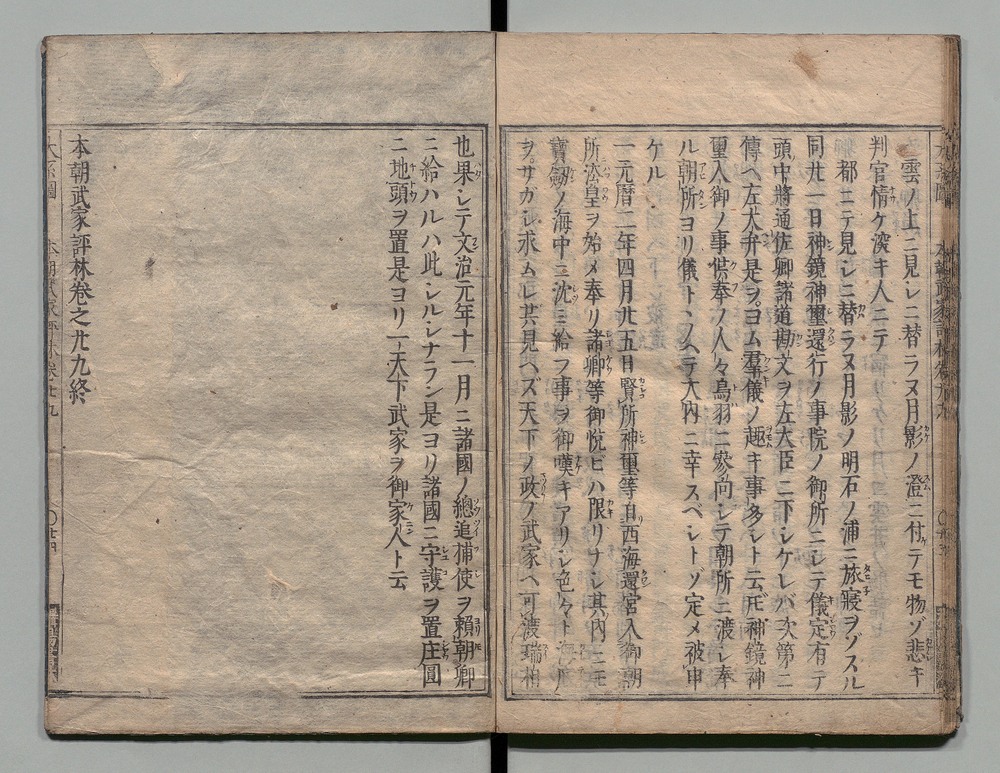 雲ノ上ニ見シニ替ラヌ月影ノ澄ニ付テモ物ゾ悲キ
判官情ケ深キ人ニテ
都ニテ見シニ替ラヌ月影ノ明石ノ浦ニ旅寢ヲゾスル
同廿一日神鏡神璽還行ノ事院ノ御所ニシテ儀定有テ
頭中將通佐卿諸道勘文ヲ左大臣ニ下シケレバ次第ニ
傳ヘ左大弁是ヲヨム羣儀ノ趣キ事多シト云㞋神鏡神
璽入御ノ事供奉ノ人々鳥羽ニ參向シテ朝所ニ渡シ奉
ル朝所ヨリ儀トヽノヘテ大内ニ幸スベシトゾ定メ被申
ケル
一元暦二年四月廿五日賢所神璽等自西海還宮入御朝
所法皇ヲ始メ奉リ諸卿等御悦ビハ限リナシ其内ニモ
寶劔ノ海中ニ沈ミ給フ事ヲ御嘆キアリシ色々ト
ヲサガシ求ムレ共見ヘズ天下ノ政ノ武家ヘ可渡瑞相
也果シテ文治元年十一月ニ諸國ノ總追捕使ヲ頼朝卿
ニ給ハルハ此シルシナラン是ヨリ諸國ニ守護ヲ置庄園
ニ地頭ヲ置是ヨリ一天下武家ヲ御家人ト云
本朝武家評林卷之廿九終